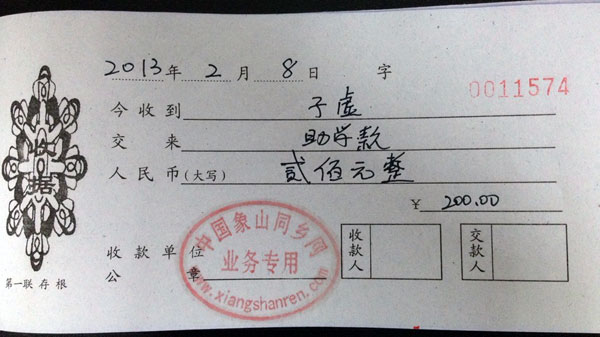 2013年 2月 8日 字
0011574
今收到 子虚
交来 助学款
人民币(大写) 贰佰元整
¥ 200.00
收据
收款单位公章
中国象山同乡网
业务专用
www.xiangshanren.com
收款人
交款人
第一联存根